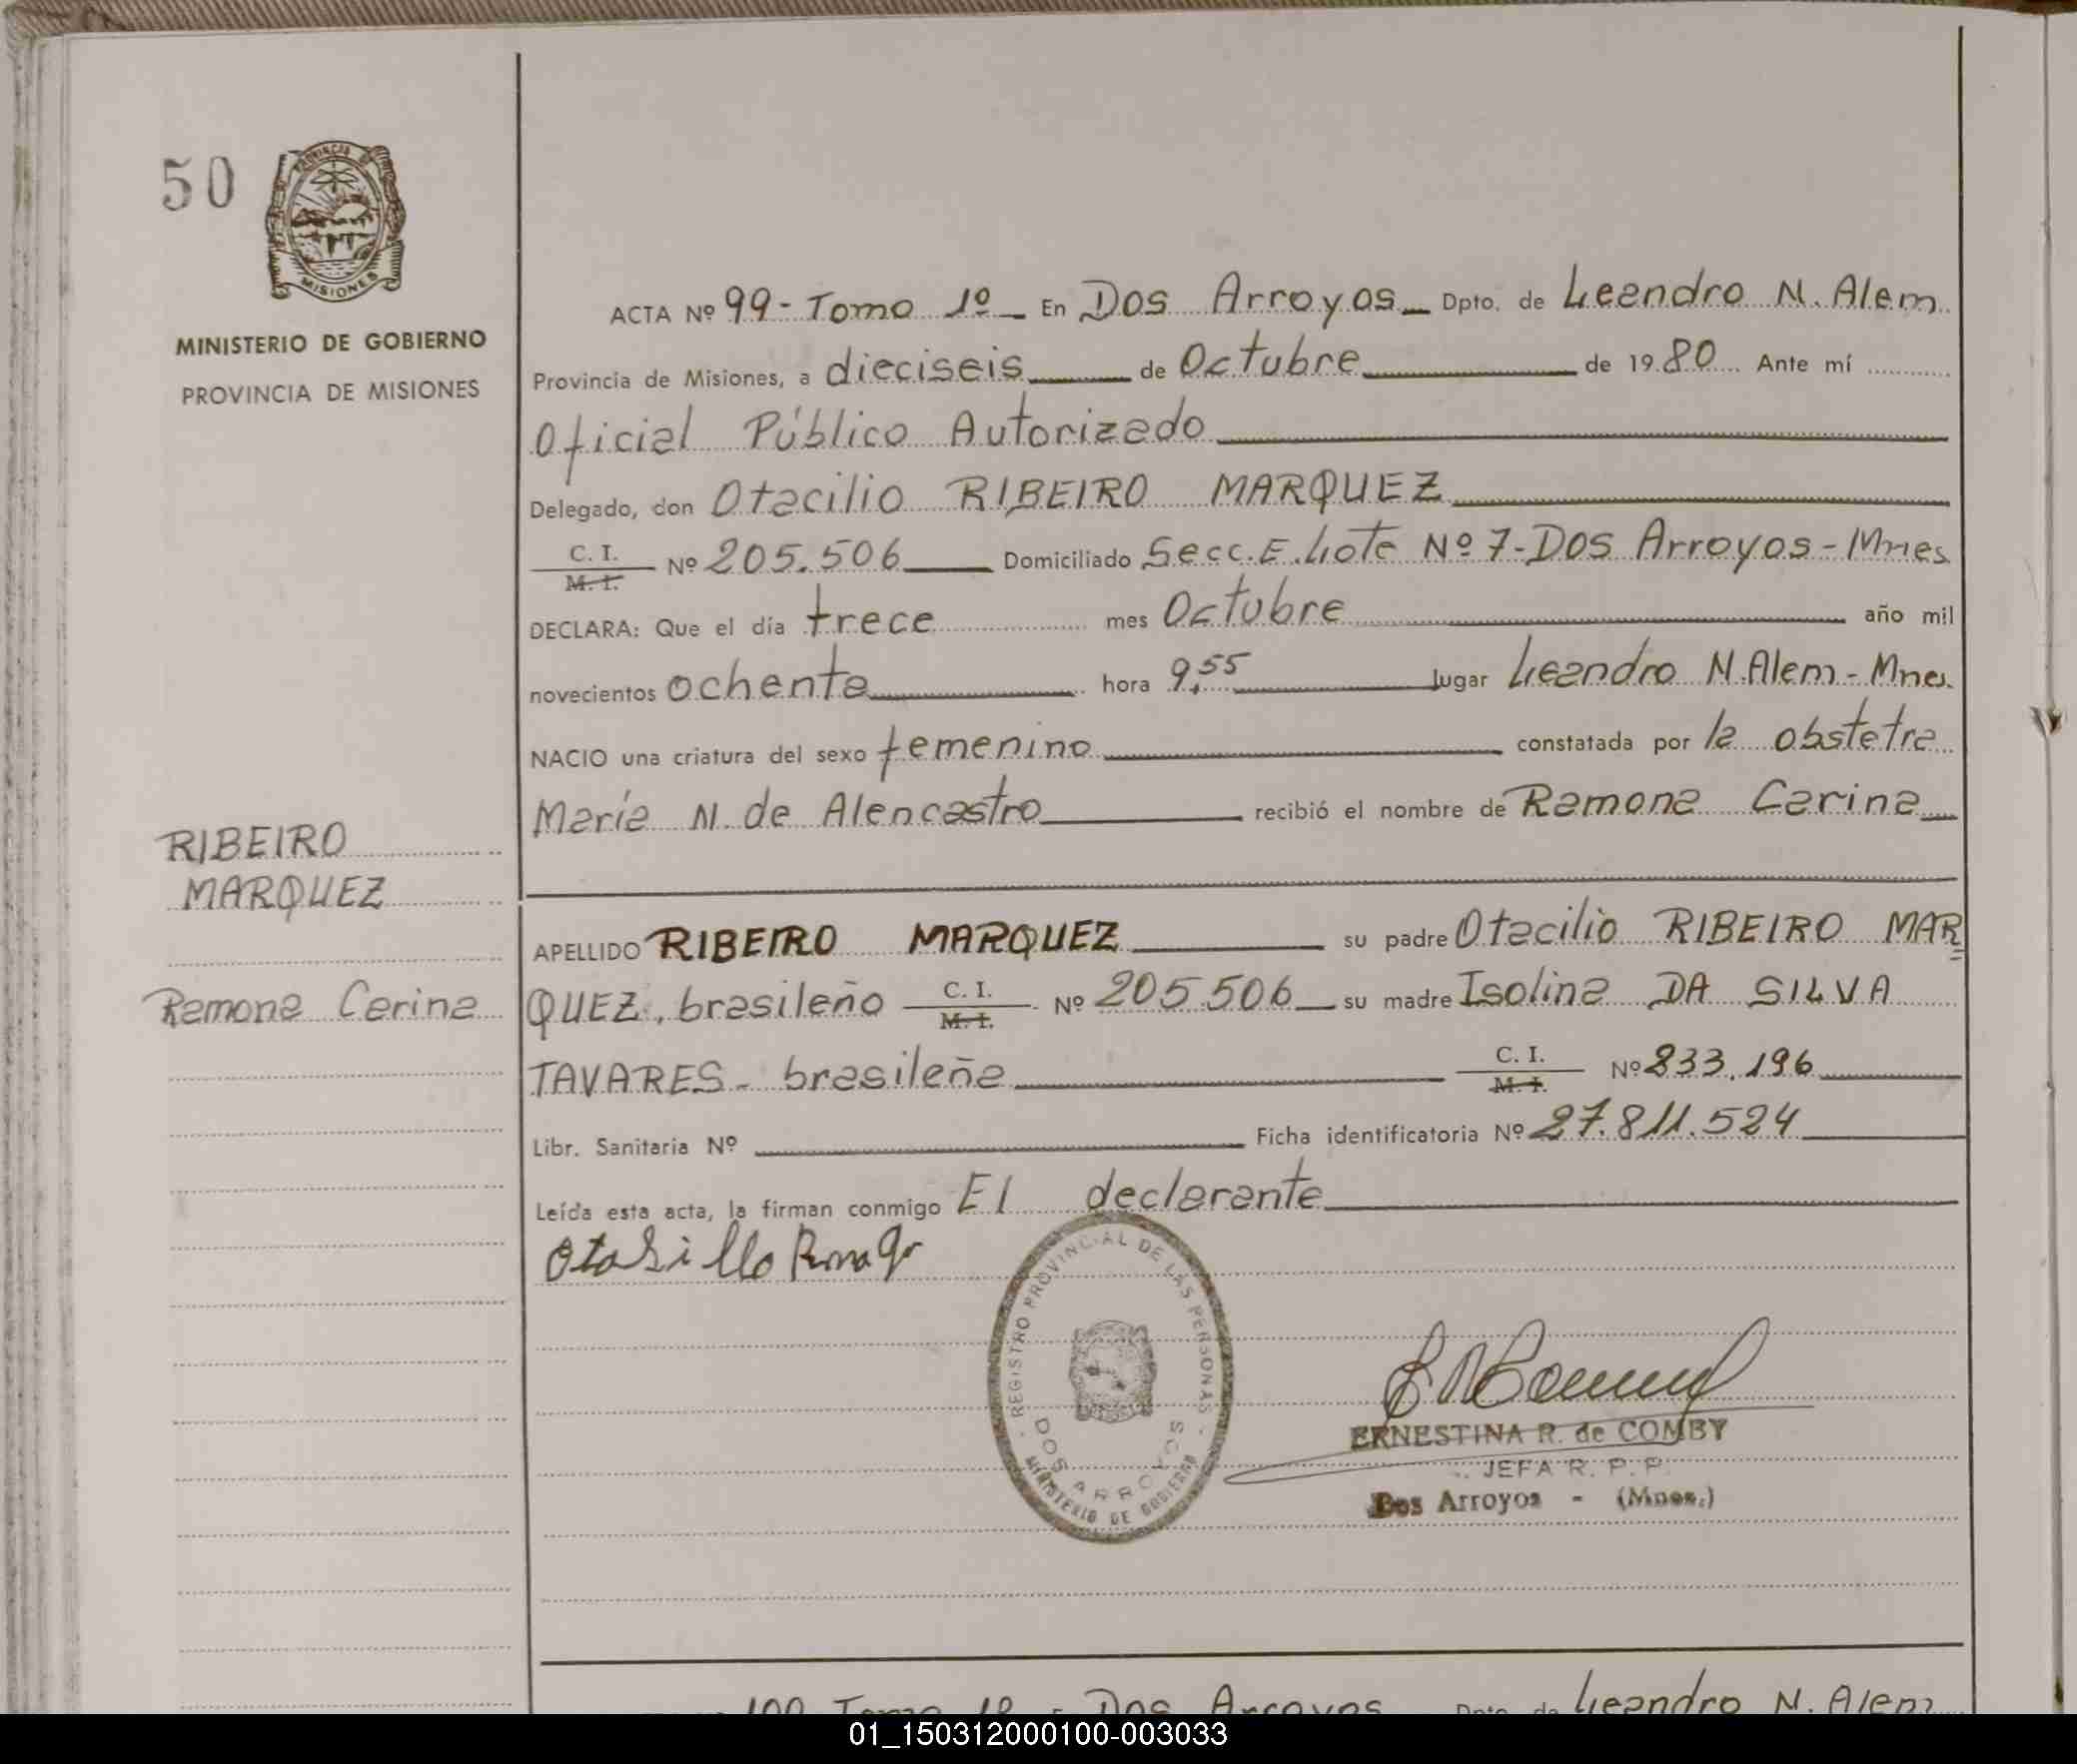 50
PROVINCIA DE
MISIONES
MINISTERIO DE GOBIERNO
PROVINCIA DE MISIONES
ACTA Nº 99 - Tomo 1º _ En Dos Arroyos _ Dpto. de Leandro N. Alem
Provincia de Misiones, a dieciseis de Octubre de 1980 Ante mí
Oficial Público Autorizado
Delegado, don Otacilio RIBEIRO MARQUEZ
C. I. / M. I. Nº 205.506 Domiciliado Secc. E. Lote Nº 7 - Dos Arroyos - Mnes
DECLARA: Que el día trece mes Octubre año mil
novecientos ochenta hora 9,55 lugar Leandro N. Alem - Mnes.
NACIO una criatura del sexo femenino constatada por la obstetra
María N. de Alencastro recibió el nombre de Ramona Carina
RIBEIRO
MARQUEZ
Ramona Carina
APELLIDO RIBEIRO MARQUEZ su padre Otacilio RIBEIRO MAR
QUEZ, brasileño C. I. / M. I. Nº 205.506 su madre Isolina DA SILVA
TAVARES - brasileña C. I. / M. I. Nº 833.196
Libr. Sanitaria Nº Ficha identificatoria Nº 27.811.524
Leída esta acta, la firman conmigo El declarante
REGISTRO PROVINCIAL DE LAS PERSONAS
DOS ARROYOS
MINISTERIO DE GOBIERNO
ERNESTINA R. de COMBY
JEFA R. P. P.
Dos Arroyos - (Mnes.)
100 Tomo 1º - Dos Arroyos Dpto. de Leandro N. Alem
01_150312000100-003033